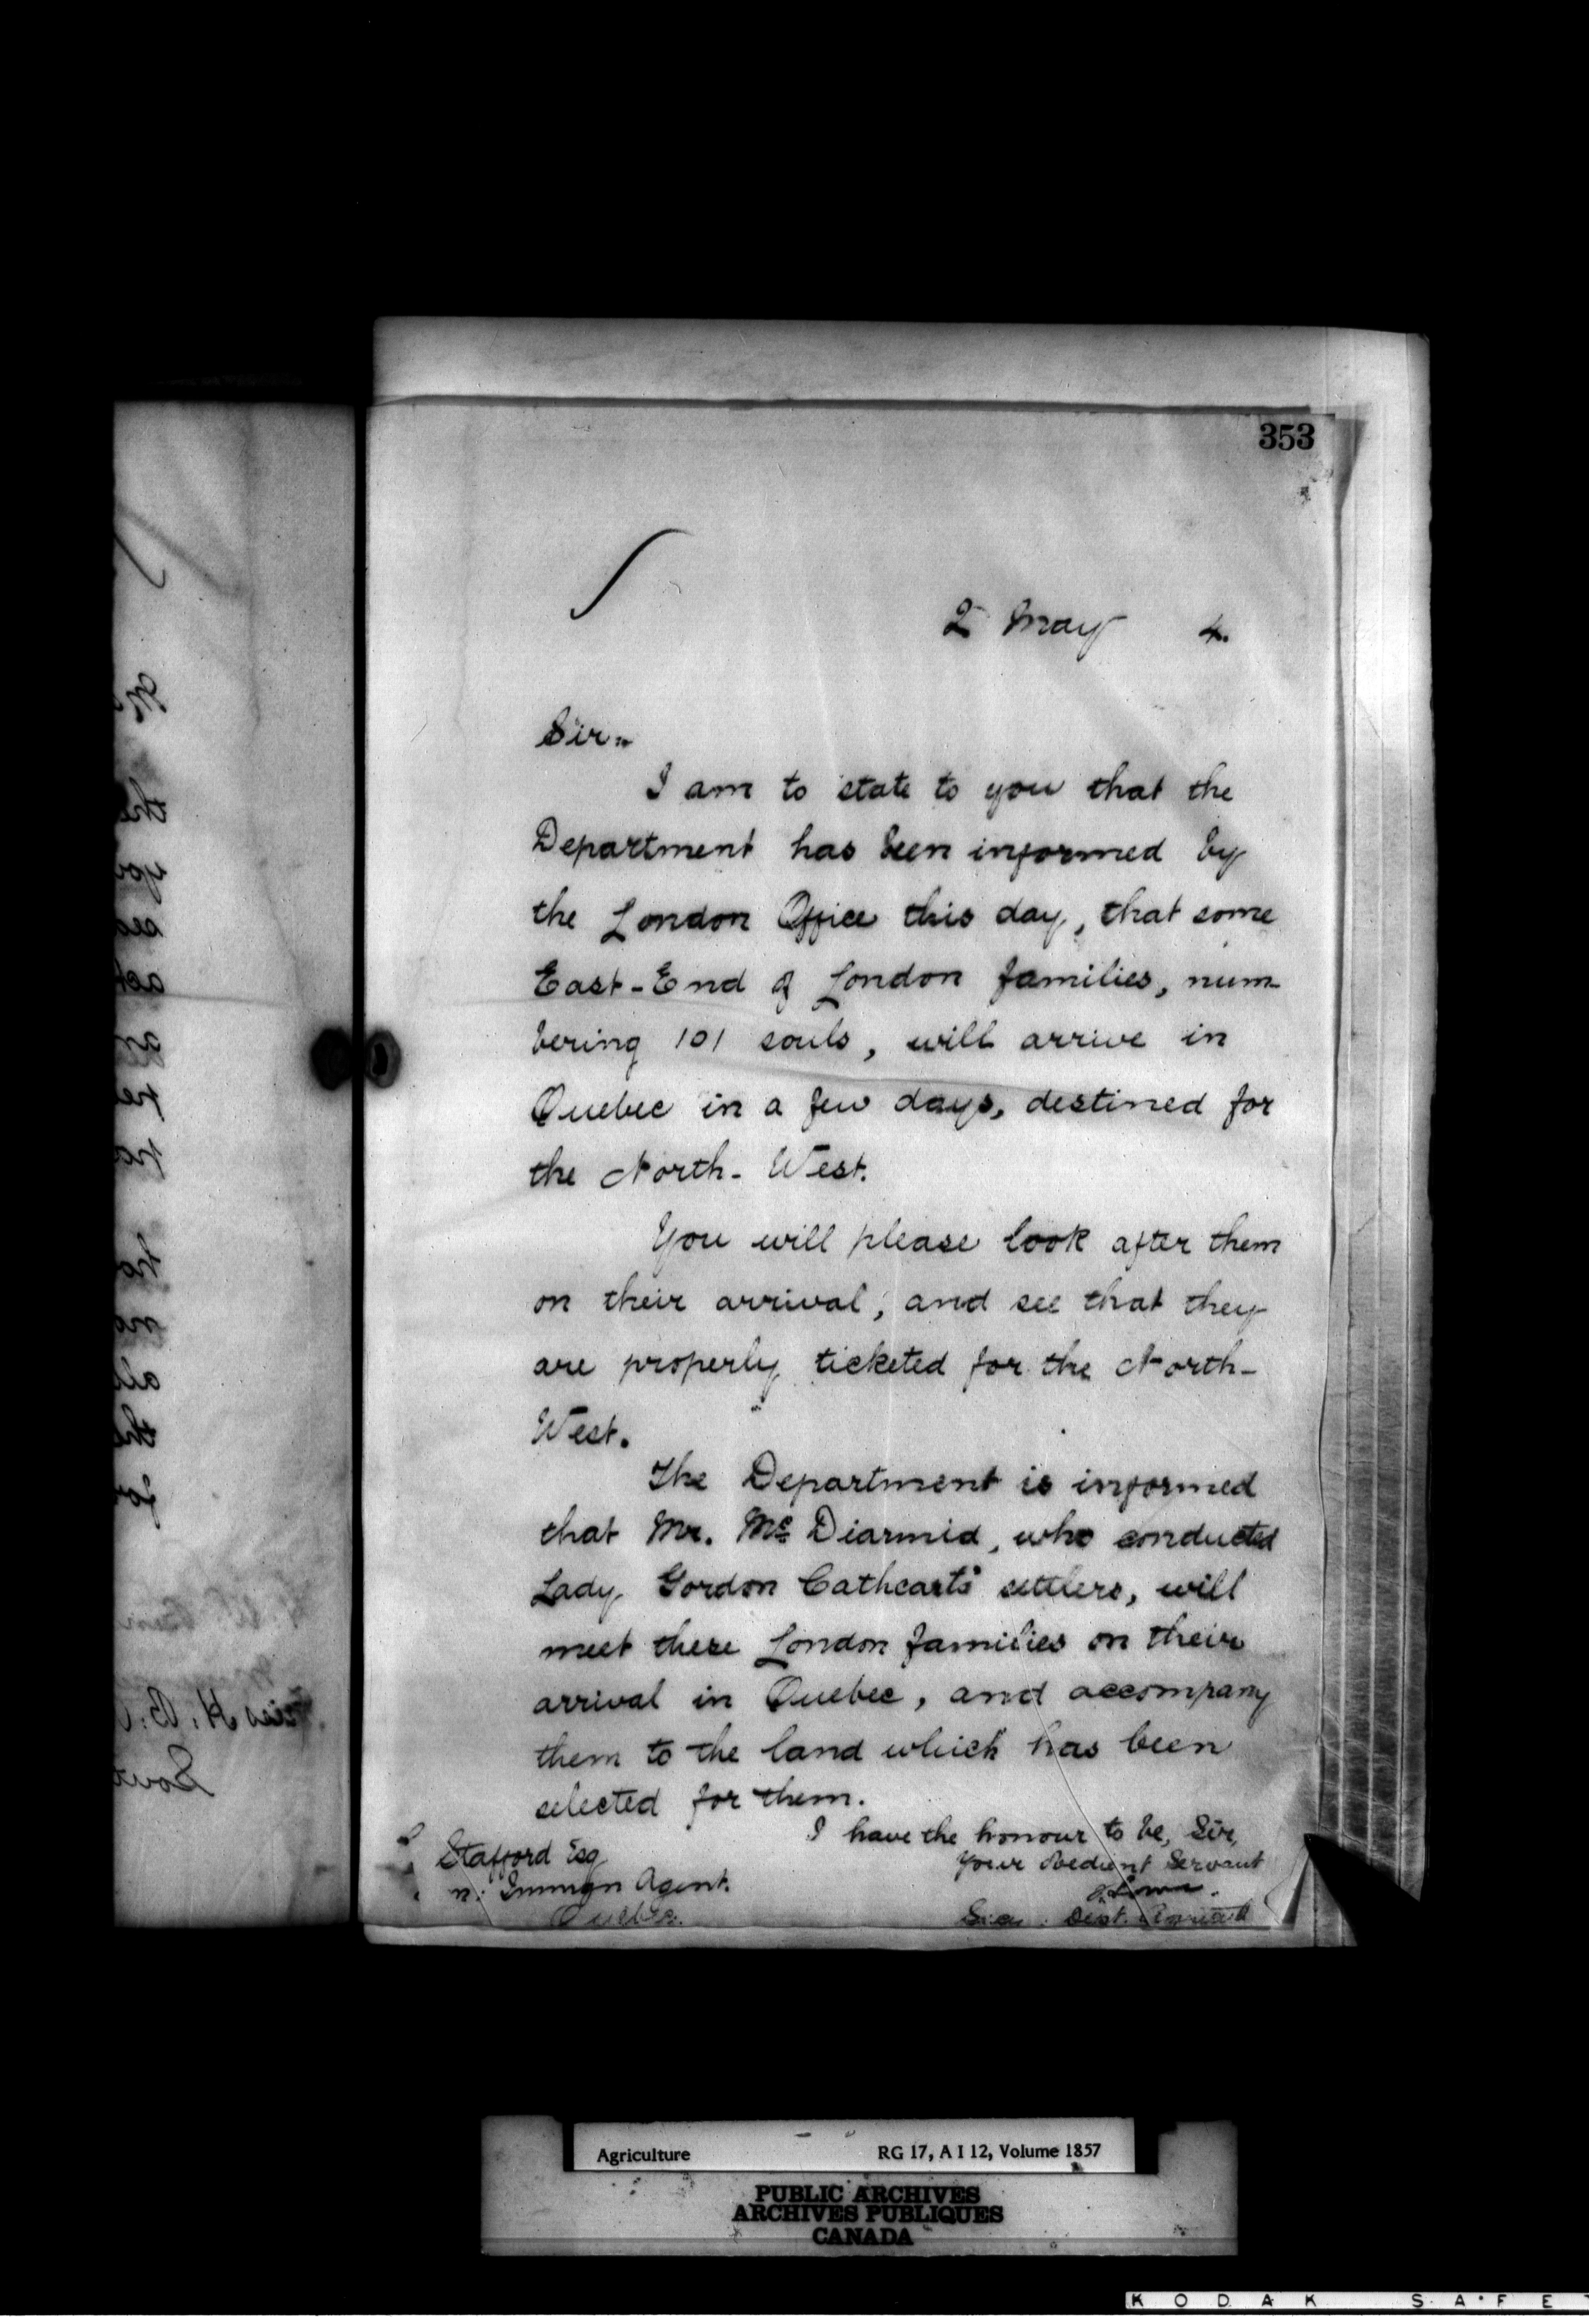 353
2 May 4.
Sir,
I am to state to you that the
Department has been informed by
the London Office this day, that some
East-End of London families, num-
bering 101 souls, will arrive in
Quebec in a few days, destined for
the North-West.
You will please look after them
on their arrival, and see that they
are properly ticketed for the North-
West.
The Department is informed
that Mr. Mc Diarmid, who conducted
Lady Gordon Cathcart's settlers, will
meet these London families on their
arrival in Quebec, and accompany
them to the land which has been
selected for them.
I have the honour to be, Sir,
Your obedient Servant
J. Lowe.
Stafford Esq
n. Immign Agent.
Quebec.
Agriculture RG 17, A I 12, Volume 1857
PUBLIC ARCHIVES
ARCHIVES PUBLIQUES
CANADA
KODAK SAFE